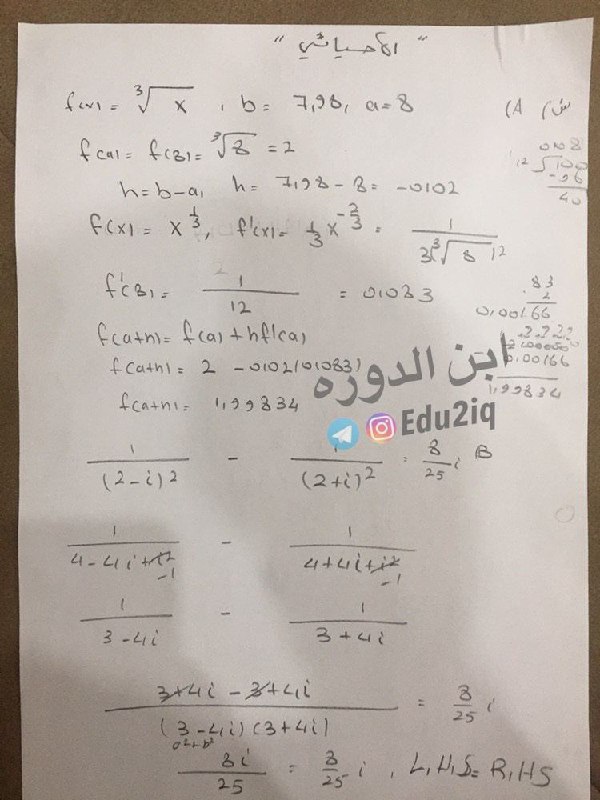 " الأحيائي "
س1 (A f(x) = ∛x , b = 7,98, a = 8
f(a) = f(8) = ∛8 = 2
h = b - a, h = 7,98 - 8 = -0,02
f(x) = x^(1/3), f'(x) = 1/3 x^(-2/3) = 1/(3(∛8)^2)
f'(8) = 1/12 = 0,083
f(a+h) = f(a) + h f'(a)
f(a+h) = 2 - 0,02(0,083)
f(a+h) = 1,99834
.83
2
0,00166
0,00166
1,99834
ابن الدوره
Edu2iq
1/(2-i)^2 - 1/(2+i)^2 = 8/25 i B
1/(4-4i+i^2) - 1/(4+4i+i^2)
-1 -1
1/(3-4i) - 1/(3+4i)
(3+4i - 3+4i)/((3-4i)(3+4i)) = 8/25 i
a^2+b^2
8i/25 = 8/25 i , L,H,S = R,HS